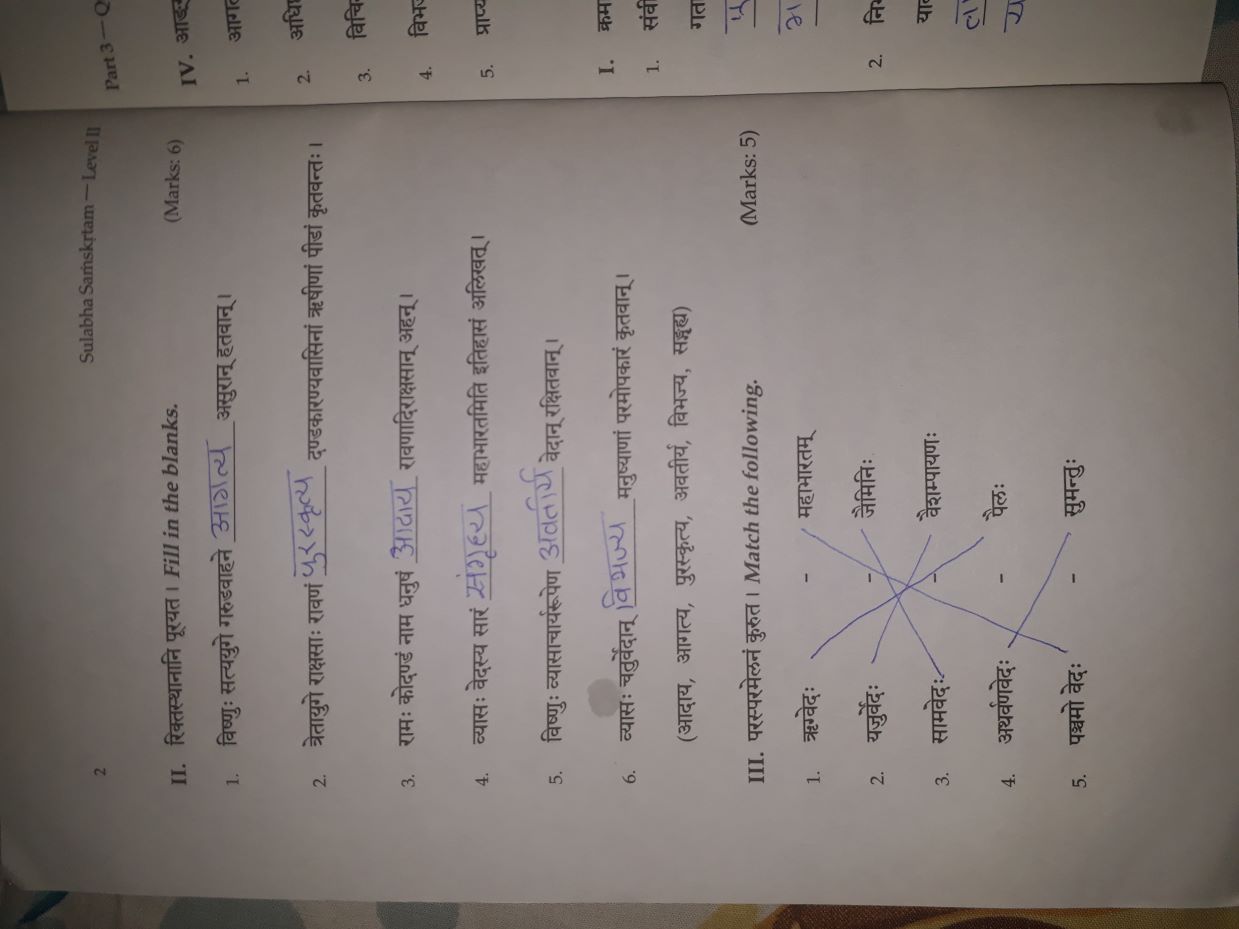 2
Sulabha Saṁskṛtam — Level II
II. रिक्तस्थानानि पूरयत । Fill in the blanks. (Marks: 6)
1. विष्णुः सत्ययुगे गरुडवाहने आगत्य असुरान् हतवान् ।
2. त्रेतायुगे राक्षसाः रावणं पुरस्कृत्य दण्डकारण्यवासिनां ऋषीणां पीडां कृतवन्तः ।
3. रामः कोदण्डं नाम धनुषं आदाय रावणादिराक्षसान् अहन् ।
4. व्यासः वेदस्य सारं संगृह्य महाभारतमिति इतिहासं अलिखत् ।
5. विष्णुः व्यासाचार्यरूपेण अवतीर्य वेदान् रक्षितवान् ।
6. व्यासः चतुर्वेदान् विभज्य मनुष्याणां परमोपकारं कृतवान् ।
(आदाय, आगत्य, पुरस्कृत्य, अवतीर्य, विभज्य, सङ्गृह्य)
III. परस्परमेलनं कुरुत । Match the following. (Marks: 5)
1. ऋग्वेदः - महाभारतम्
2. यजुर्वेदः - जैमिनिः
3. सामवेदः - वैशम्पायणः
4. अथर्वणवेदः - पैलः
5. पञ्चमो वेदः - सुमन्तुः
Part 3 — Q
IV.
1.
2.
3.
4.
5.
I.
1.
2.